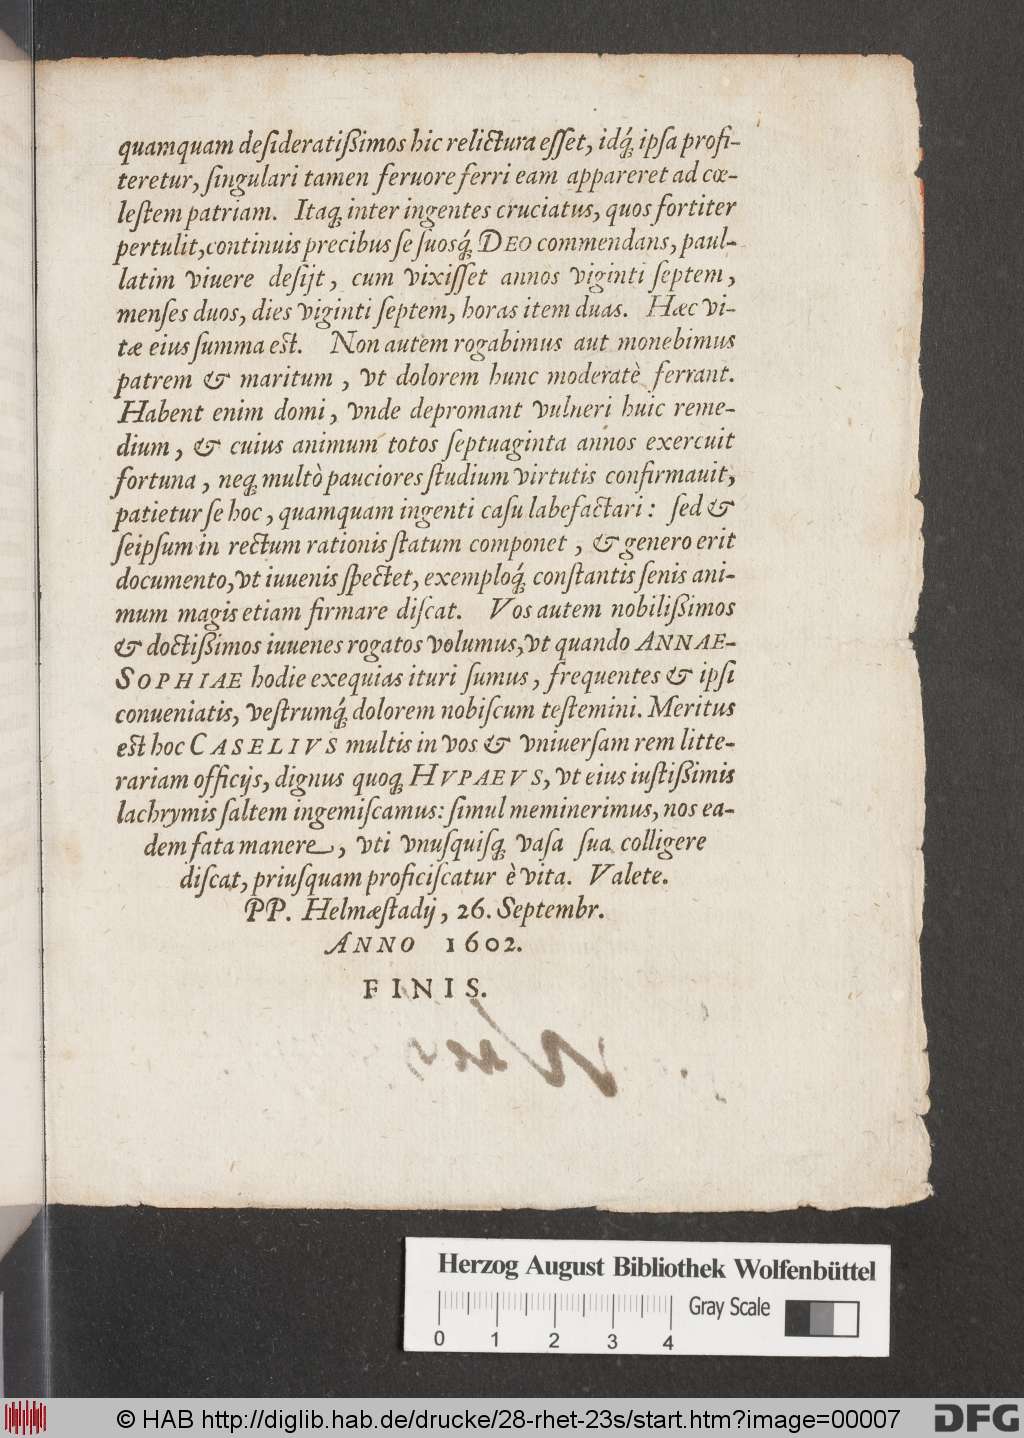 quamquam deſideratißimos hic relictura eſſet, idq́; ipſa profi-
teretur, ſingulari tamen feruore ferri eam appareret ad cœ-
leſtem patriam. Itaq; inter ingentes cruciatus, quos fortiter
pertulit, continuis precibus ſe ſuosq́; DEO commendans, paul-
latim viuere deſijt, cum vixiſſet annos viginti ſeptem,
menſes duos, dies viginti ſeptem, horas item duas. Hæc vi-
tæ eius ſumma est. Non autem rogabimus aut monebimus
patrem & maritum, vt dolorem hunc moderatè ferrant.
Habent enim domi, vnde depromant vulneri huic reme-
dium, & cuius animum totos ſeptuaginta annos exercuit
fortuna, neq; multò pauciores ſtudium virtutis confirmauit,
patietur ſe hoc, quamquam ingenti caſu labefactari: ſed &
ſeipſum in rectum rationis ſtatum componet, & genero erit
documento, vt iuuenis ſpectet, exemploq́; conſtantis ſenis ani-
mum magis etiam firmare diſcat. Vos autem nobilißimos
& doctißimos iuuenes rogatos volumus, vt quando ANNAE-
SOPHIAE hodie exequias ituri ſumus, frequentes & ipſi
conueniatis, veſtrumq́; dolorem nobiſcum teſtemini. Meritus
est hoc CASELIVS multis in vos & vniuerſam rem litte-
rariam officijs, dignus quoq; HVPAEVS, vt eius iuſtißimis
lachrymis ſaltem ingemiſcamus: ſimul meminerimus, nos ea-
dem fata manere, vti vnuſquiſq; vaſa ſua colligere
diſcat, priuſquam proficiſcatur è vita. Valete.
PP. Helmæſtadij, 26. Septembr.
ANNO 1602.
FINIS.
Herzog August Bibliothek Wolfenbüttel
Gray Scale
0 1 2 3 4
© HAB http://diglib.hab.de/drucke/28-rhet-23s/start.htm?image=00007
DFG